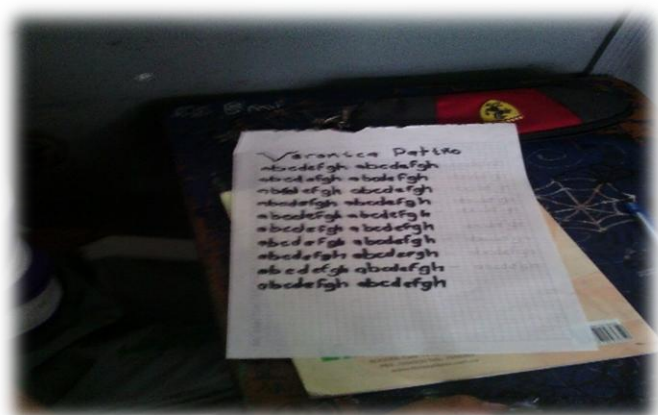 abcdefgh abcdefgh
abcdefgh abcdefgh
abcdefgh abcdefgh
abcdefgh abcdefgh
abcdefgh abcdefgh
abcdefgh abcdefgh
abcdefgh abcdefgh
abcdefgh abcdefgh
abcdefgh abcdefgh
abcdefgh abcdefgh